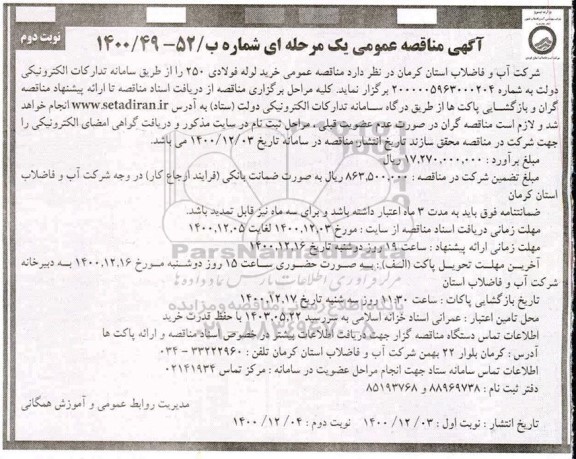 نوبت دوم
آگهی مناقصه عمومی یک مرحله ای شماره ب/۵۲- ۱۴۰۰/۴۹
شرکت آب و فاضلاب استان کرمان در نظر دارد مناقصه عمومی خرید لوله فولادی ۲۵۰ را از طریق سامانه تدارکات الکترونیکی
دولت به شماره ۲۰۰۰۰۰۵۹۶۳۰۰۰۲۰۴ برگزار نماید. کلیه مراحل برگزاری مناقصه از دریافت اسناد مناقصه تا ارائه پیشنهاد مناقصه
گران و بازگشایی پاکت ها از طریق درگاه سامانه تدارکات الکترونیکی دولت (ستاد) به آدرس www.setadiran.ir انجام خواهد
شد و لازم است مناقصه گران در صورت عدم عضویت قبلی، مراحل ثبت نام در سایت مذکور و دریافت گواهی امضای الکترونیکی را
جهت شرکت در مناقصه محقق سازند تاریخ انتشار مناقصه در سامانه تاریخ ۱۴۰۰/۱۲/۰۳ می باشد.
مبلغ برآورد : ۱۷.۲۷۰.۰۰۰.۰۰۰ ریال
مبلغ تضمین شرکت در مناقصه : ۸۶۳.۵۰۰.۰۰۰ ریال به صورت ضمانت بانکی (فرایند ارجاع کار) در وجه شرکت آب و فاضلاب
استان کرمان
ضمانتنامه فوق باید به مدت ۳ ماه اعتبار داشته باشد و برای سه ماه نیز قابل تمدید باشد.
مهلت زمانی دریافت اسناد مناقصه از سایت : مورخ ۱۴۰۰.۱۲.۰۳ لغایت ۱۴۰۰.۱۲.۰۵
مهلت زمانی ارائه پیشنهاد : ساعت ۱۹ روز دوشنبه تاریخ ۱۴۰۰.۱۲.۱۶
آخرین مهلت تحویل پاکت (الف): به صورت حضوری ساعت ۱۵ روز دوشنبه مورخ ۱۴۰۰.۱۲.۱۶ به دبیرخانه
شرکت آب و فاضلاب استان
تاریخ بازگشایی پاکات : ساعت ۱۱:۳۰ روز سه شنبه تاریخ ۱۴۰۰.۱۲.۱۷
محل تامین اعتبار : عمرانی اسناد خزانه اسلامی به سررسید ۱۴۰۳.۰۵.۲۲ با حفظ قدرت خرید
اطلاعات تماس دستگاه مناقصه گزار جهت دریافت اطلاعات بیشتر در خصوص اسناد مناقصه و ارائه پاکت ها
آدرس : کرمان بلوار ۲۲ بهمن شرکت آب و فاضلاب استان کرمان تلفن : ۳۳۲۲۲۹۶۰ - ۰۳۴
اطلاعات تماس سامانه ستاد جهت انجام مراحل عضویت در سامانه : مرکز تماس ۰۲۱۴۱۹۳۴
دفتر ثبت نام : ۸۸۹۶۹۷۳۸ و ۸۵۱۹۳۷۶۸
مدیریت روابط عمومی و آموزش همگانی
تاریخ انتشار : نوبت اول : ۱۴۰۰/۱۲/۰۳ نوبت دوم : ۱۴۰۰/۱۲/۰۴
ParsNamadData